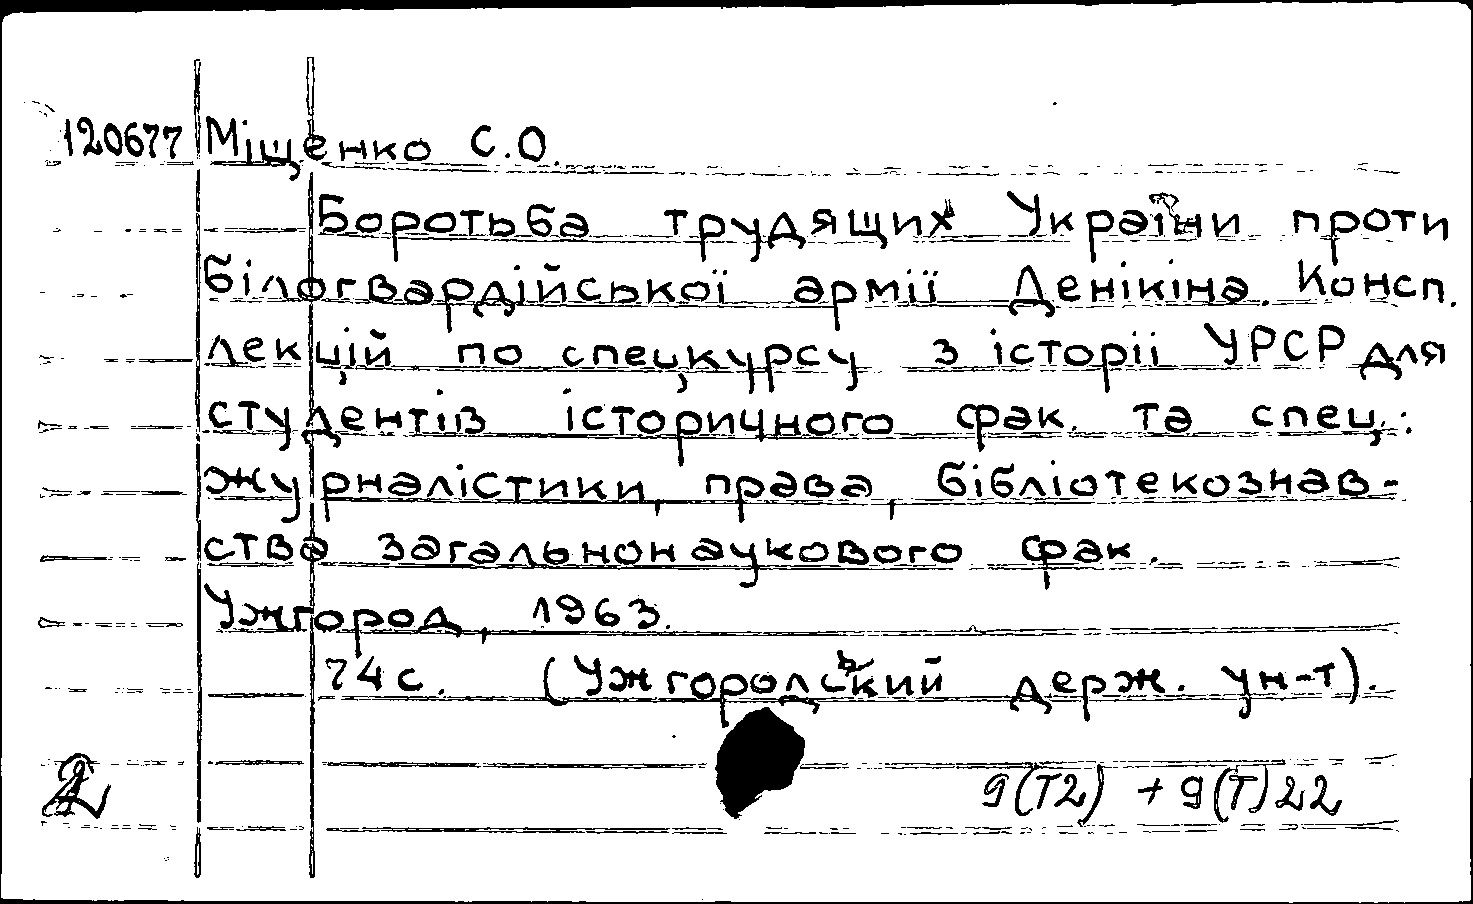 120677 Міщенко С.О.
Боротьба трудящих України проти
білогвардійської армії Денікіна. Консп.
лекцій по спецкурсу з історіі УРСР для
студентів історичного фак. та спец.:
журналістики, права, бібліотекознав-
ства загальнонаукового фак.
Ужгород, 1963.
74 с. (Ужгородський держ. ун-т).
2 9(Т2) + 9(Т)22